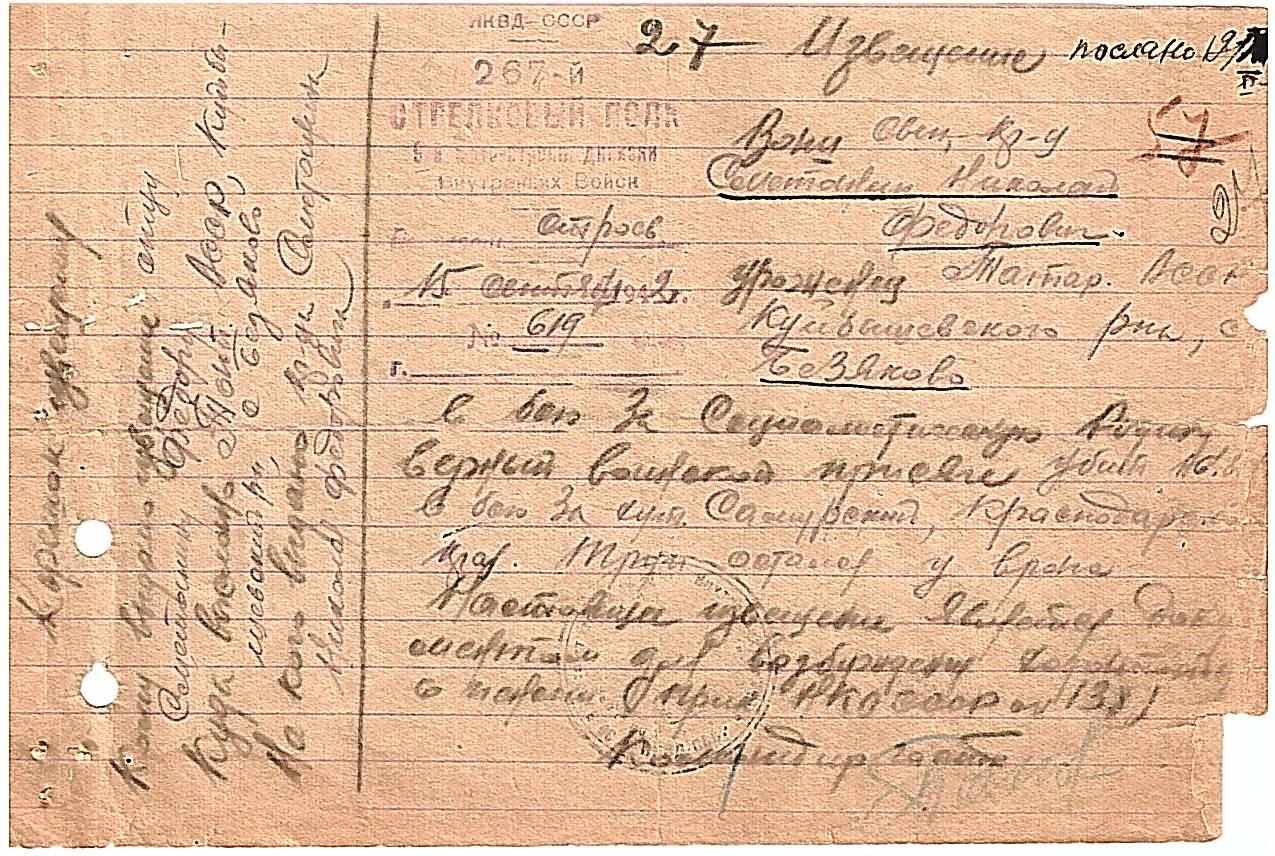 НКВД–СССР
267-й
СТРЕЛКОВЫЙ ПОЛК
Внутренних Войск
15 сентября 1942г.
№ 619
г.
27 Извещение послано
57
Ваш
Сметанин Николай
Федорович.
уроженец Татар. АССР
Куйбышевского р-на, с
Безяково
в бою за Социалистическую Родину,
верный воинской присяге убит 16.8
в бою за хут. Самурский, Краснодарского
края. Труп остался у врага
Настоящее извещение является доку
ментом для возбуждения ходатайства
о пенсии (прик НКО СССР № 138)
Командир
Корешок извещения
Кому выдано извещение отцу
Сметанину Федору
Куда выслано Тат. АССР, Куйбы-
шевский р-н, с Безяково
На кого выдано Сметанин
Николай Федорович